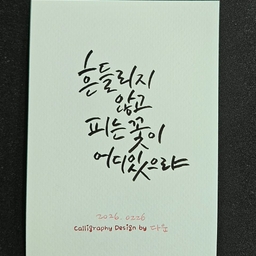 흔들리지
않고
피는 꽃이
어디있으랴
2026. 0226
Calligraphy Design by 다온